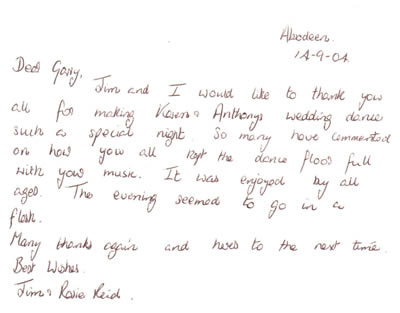 Aberdeen.
14-9-04.
Dear Garry,
Jim and I would like to thank you
all for making Karen & Anthonys wedding dance
such a special night. So many have commented
on how you all kept the dance floor full
with your music. It was enjoyed by all
ages. The evening seemed to go in a
flash.
Many thanks again and heres to the next time.
Best Wishes.
Jim & Rosie Reid.